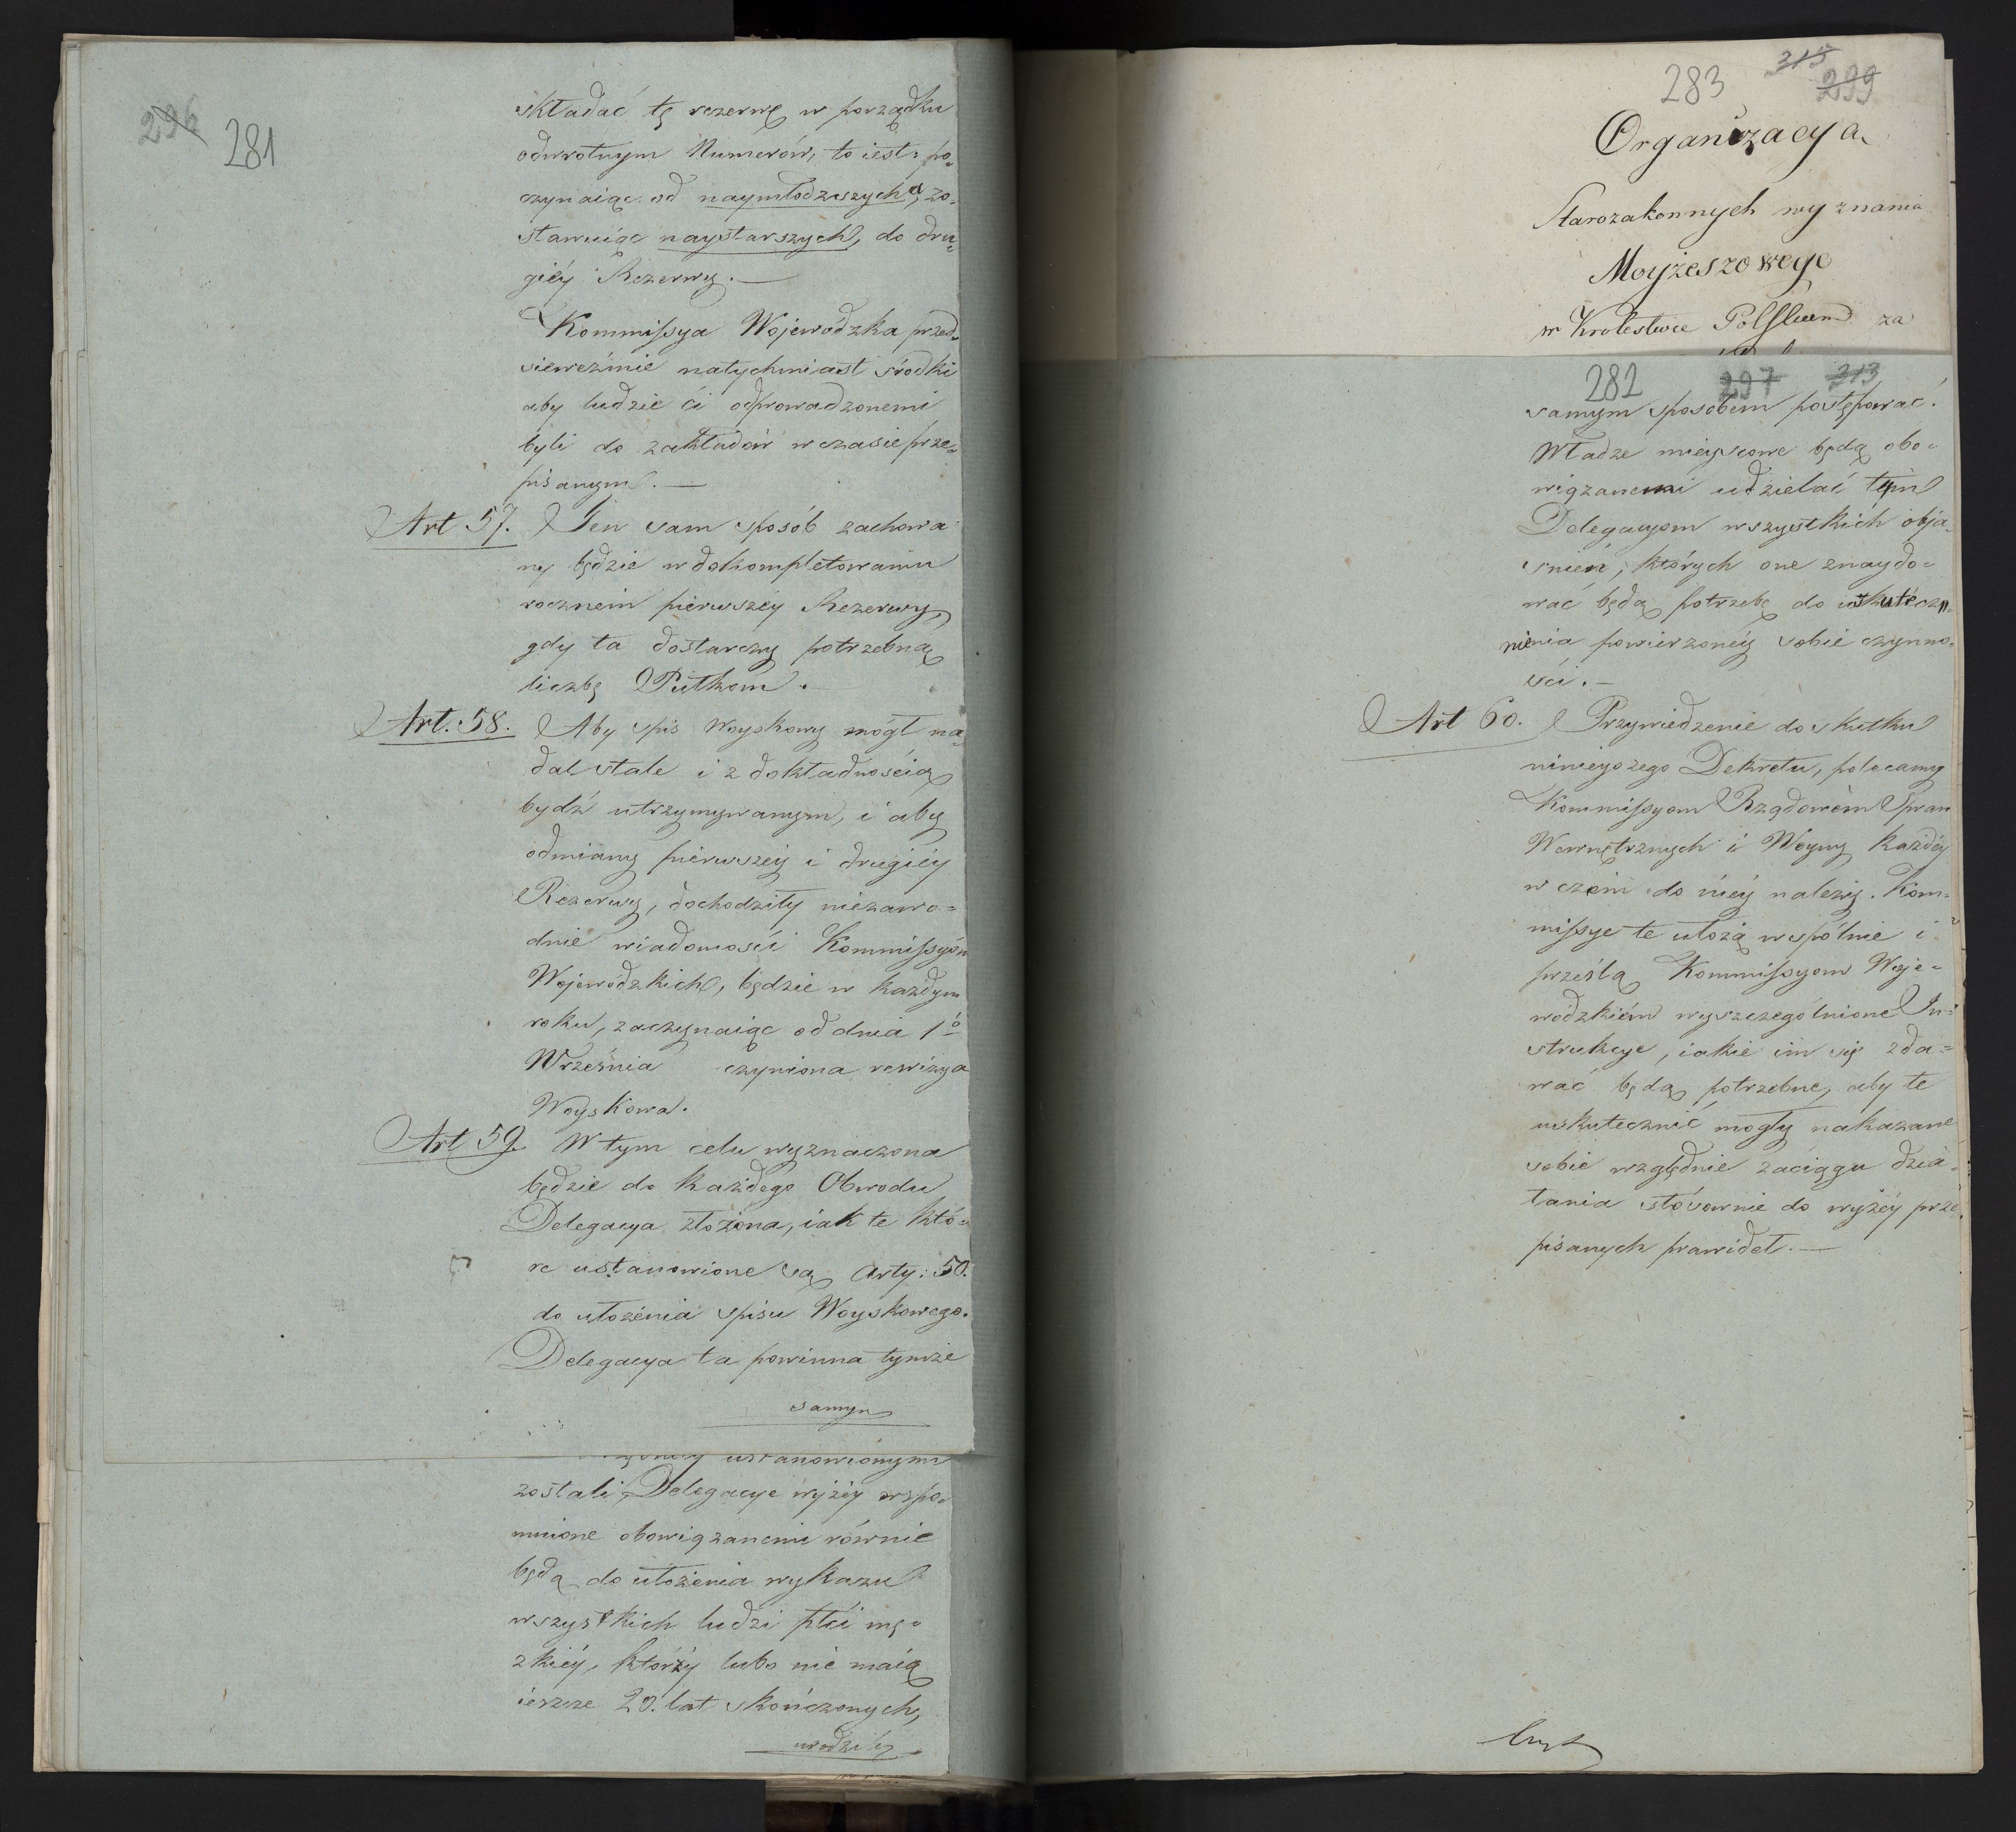 296 281
składać tę rezerwę w porządku
odwrotnym Numerów, to iest: po-
czynaiąc od naymłodzszych a, zo-
stawuiąc naystarszych, do dru-
giéy Rezerwy. —
Kommissya Wojewódzka przed-
sieweźmie natychmiast środki
aby ludzie ci odprowadzonemi
byli do zakładów w czasie prze-
pisanym. —
Art 57. Ten sam sposób zachowa
ny będzie w dokompletowaniu
roczném pierwszéy Rezerwy,
gdy ta dostarczy potrzebną
liczbę Pułkom.
Art. 58. Aby spis Woyskowy mógł na-
dal stale i z dokładnością
bydź utrzymywanym, i aby
odmiany pierwszéy i drugiéy
Rezerwy, dochodziły niezawo=
dnie wiadomości Kommissyów
Wojewódzkich, będzie w każdym
roku, zaczynaiąc od dnia 1º
Września czyniona rewizya
Woyskowa.
Art 59. W tym celu wyznaczona
będzie do każdego Obwodu
Delegacya złożona, iak te któ-
re ustanowione są Arty: 50.
do ułożenia spisu Woyskowego.
Delegacya ta powinna tymże
samym
ustanowionymi
zostali, Delegacye wyżéy wspo-
mnione obowiązanemi równie
będą do ułożenia wykazu
wszystkich ludzi płci mę-
zkiéy, którzy lubo nie maią
ieszcze 20. lat skończonych,
urodzili
283 315 299
Organizacya
Starozakonnych wyznania
Moyżeszowego
w Królestwie Polskiem za
282 297 313
samym sposobem postępować.
Władze mieyscowe będą obo-
wiązanemi udzielać tym
Delegacyom wszystkich obja-
śnień, których one znaydo-
wać będą potrzebę do uskutecz-
nienia powierzonéy sobie czynno-
ści. —
Art 60. Przywiedzenie do skutku
ninieyszego Dekretu, polecamy
Kommissyom Rządowém Spraw
Wewnętrznych i Woyny każdéy
w czém do niéy należy. Kom-
missye te ułożą wspólnie i
prześlą Kommissyom Woje-
wódzkiém wyszczególnione In-
strukcye, iakie im się zda=
wać będą potrzebne, aby te
uskutecznić mogły nakazane
sobie względnie zaciągu dzia-
łania stósownie do wyżéy prze-
pisanych prawideł. —